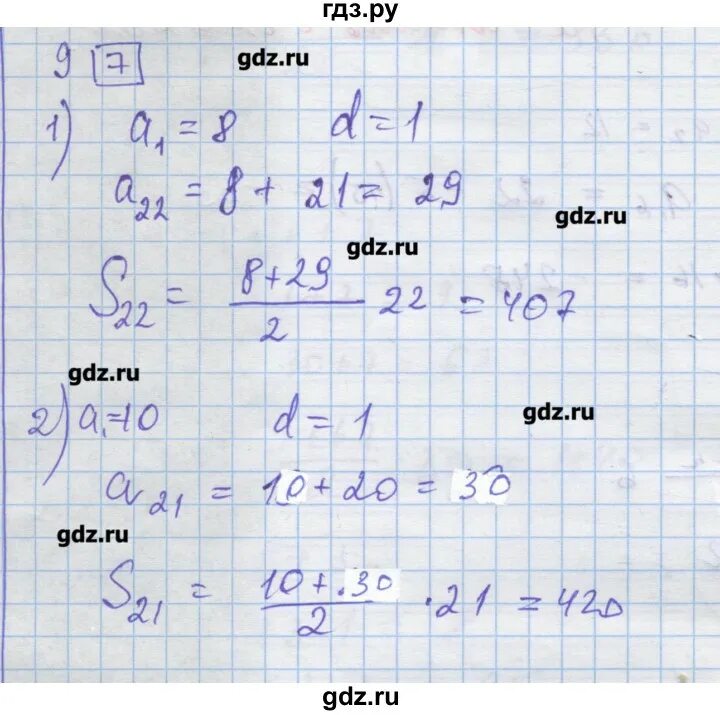 гдз.ру
9 7
gdz.ru
1) a₁ = 8 d = 1
a₂₂ = 8 + 21 = 29
gdz.ru
gdz.ru
S₂₂ = (8+29)/2 22 = 407
gdz.ru
gdz.ru
2) a₁=10 d = 1
a₂₁ = 10 + 20 = 30
gdz.ru
S₂₁ = (10 + .30)/2 · 21 = 420
gdz.ru